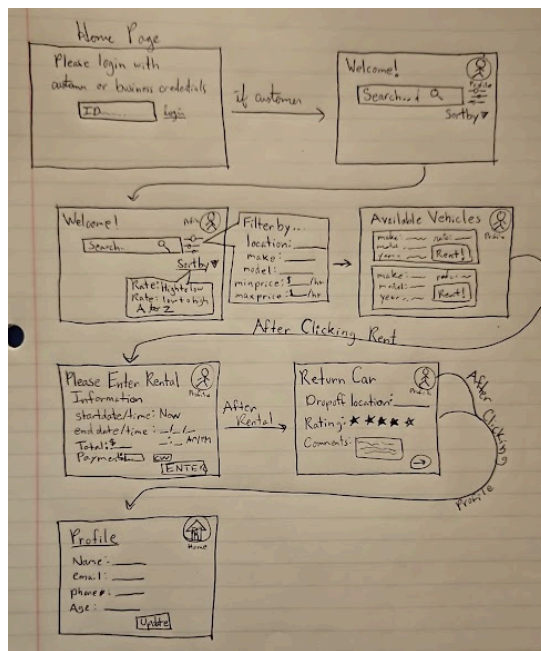 Home Page
Please login with
customer or business credentials
ID......
Login
if customer
Welcome!
Profile
Search....
Sort by▼
Welcome!
Search..
Sort by▼
Rate: High to low
Rate: low to high
A to Z
Filter by...
location:
make:
model:
min price: $ /hr
max price: $ /hr
Available Vehicles
Profile
make: rate:
model:
year: Rent!
make: rate:
model:
year: Rent!
After Clicking Rent
Please Enter Rental
Information
Profile
start date/time: Now
end date/time: _/_/_
Total: $ _:_ AM/PM
Payment:
ENTER
After
Rental
Return Car
Profile
Dropoff location:
Rating: ★ ★ ★ ★ ★
Comments:
After Clicking
Profile
Profile
Home
Name:
email:
phone#:
Age:
Update